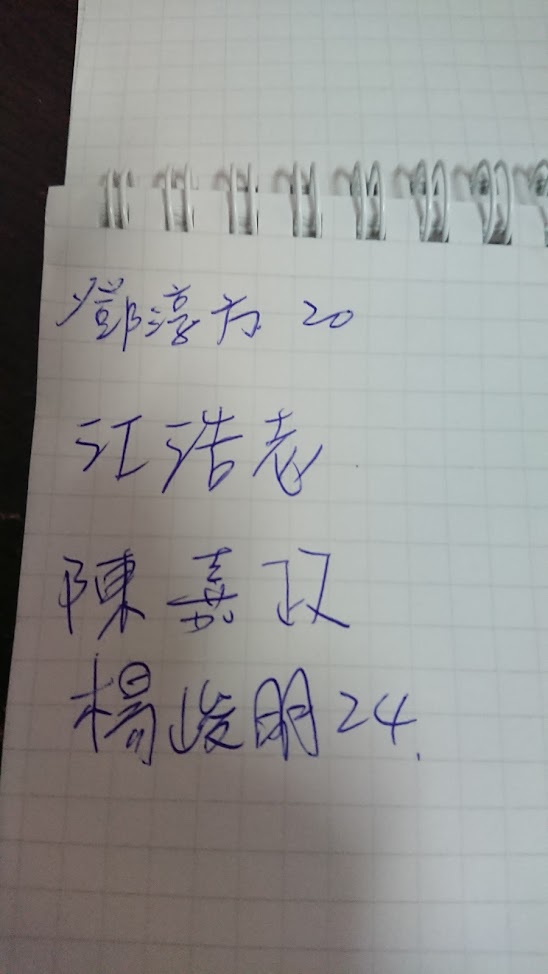 鄧淳方 20
江浩志
陳嘉政
楊峻明 24.